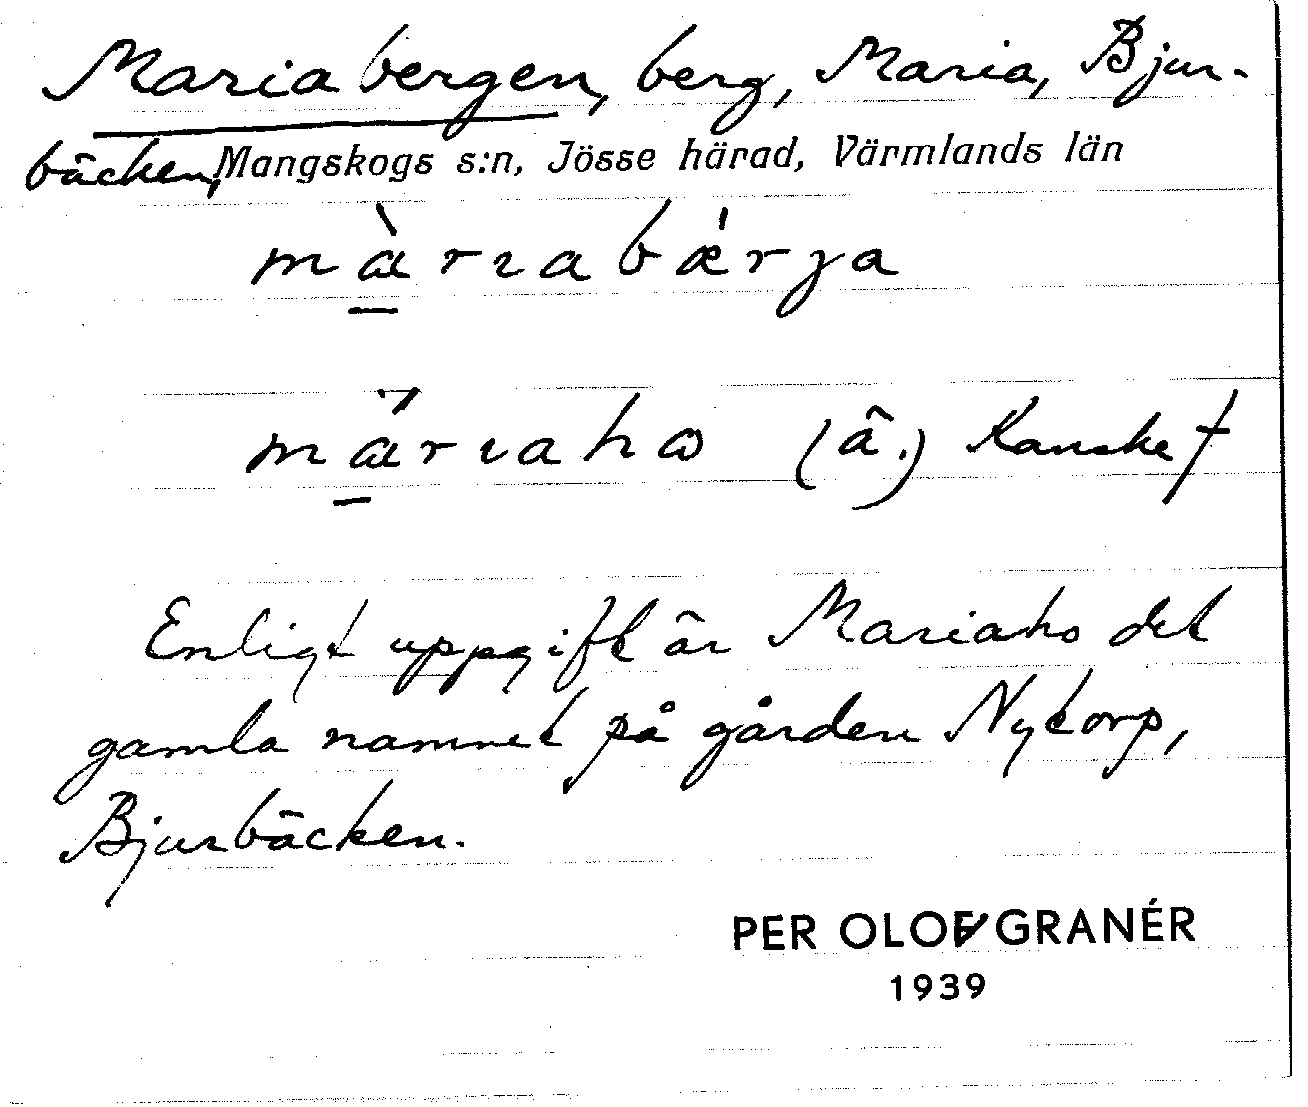 Mariabergen, berg, Maria, Bjur-
bäcken, Mangskogs s:n, Jösse härad, Värmlands län
màrıabǽrja
märıahω (ä.) Kanske †
Enligt uppgift är Mariaho det
gamla namnet på gården Nytorp,
Bjurbäcken.
PER OLOF GRANÉR
1939